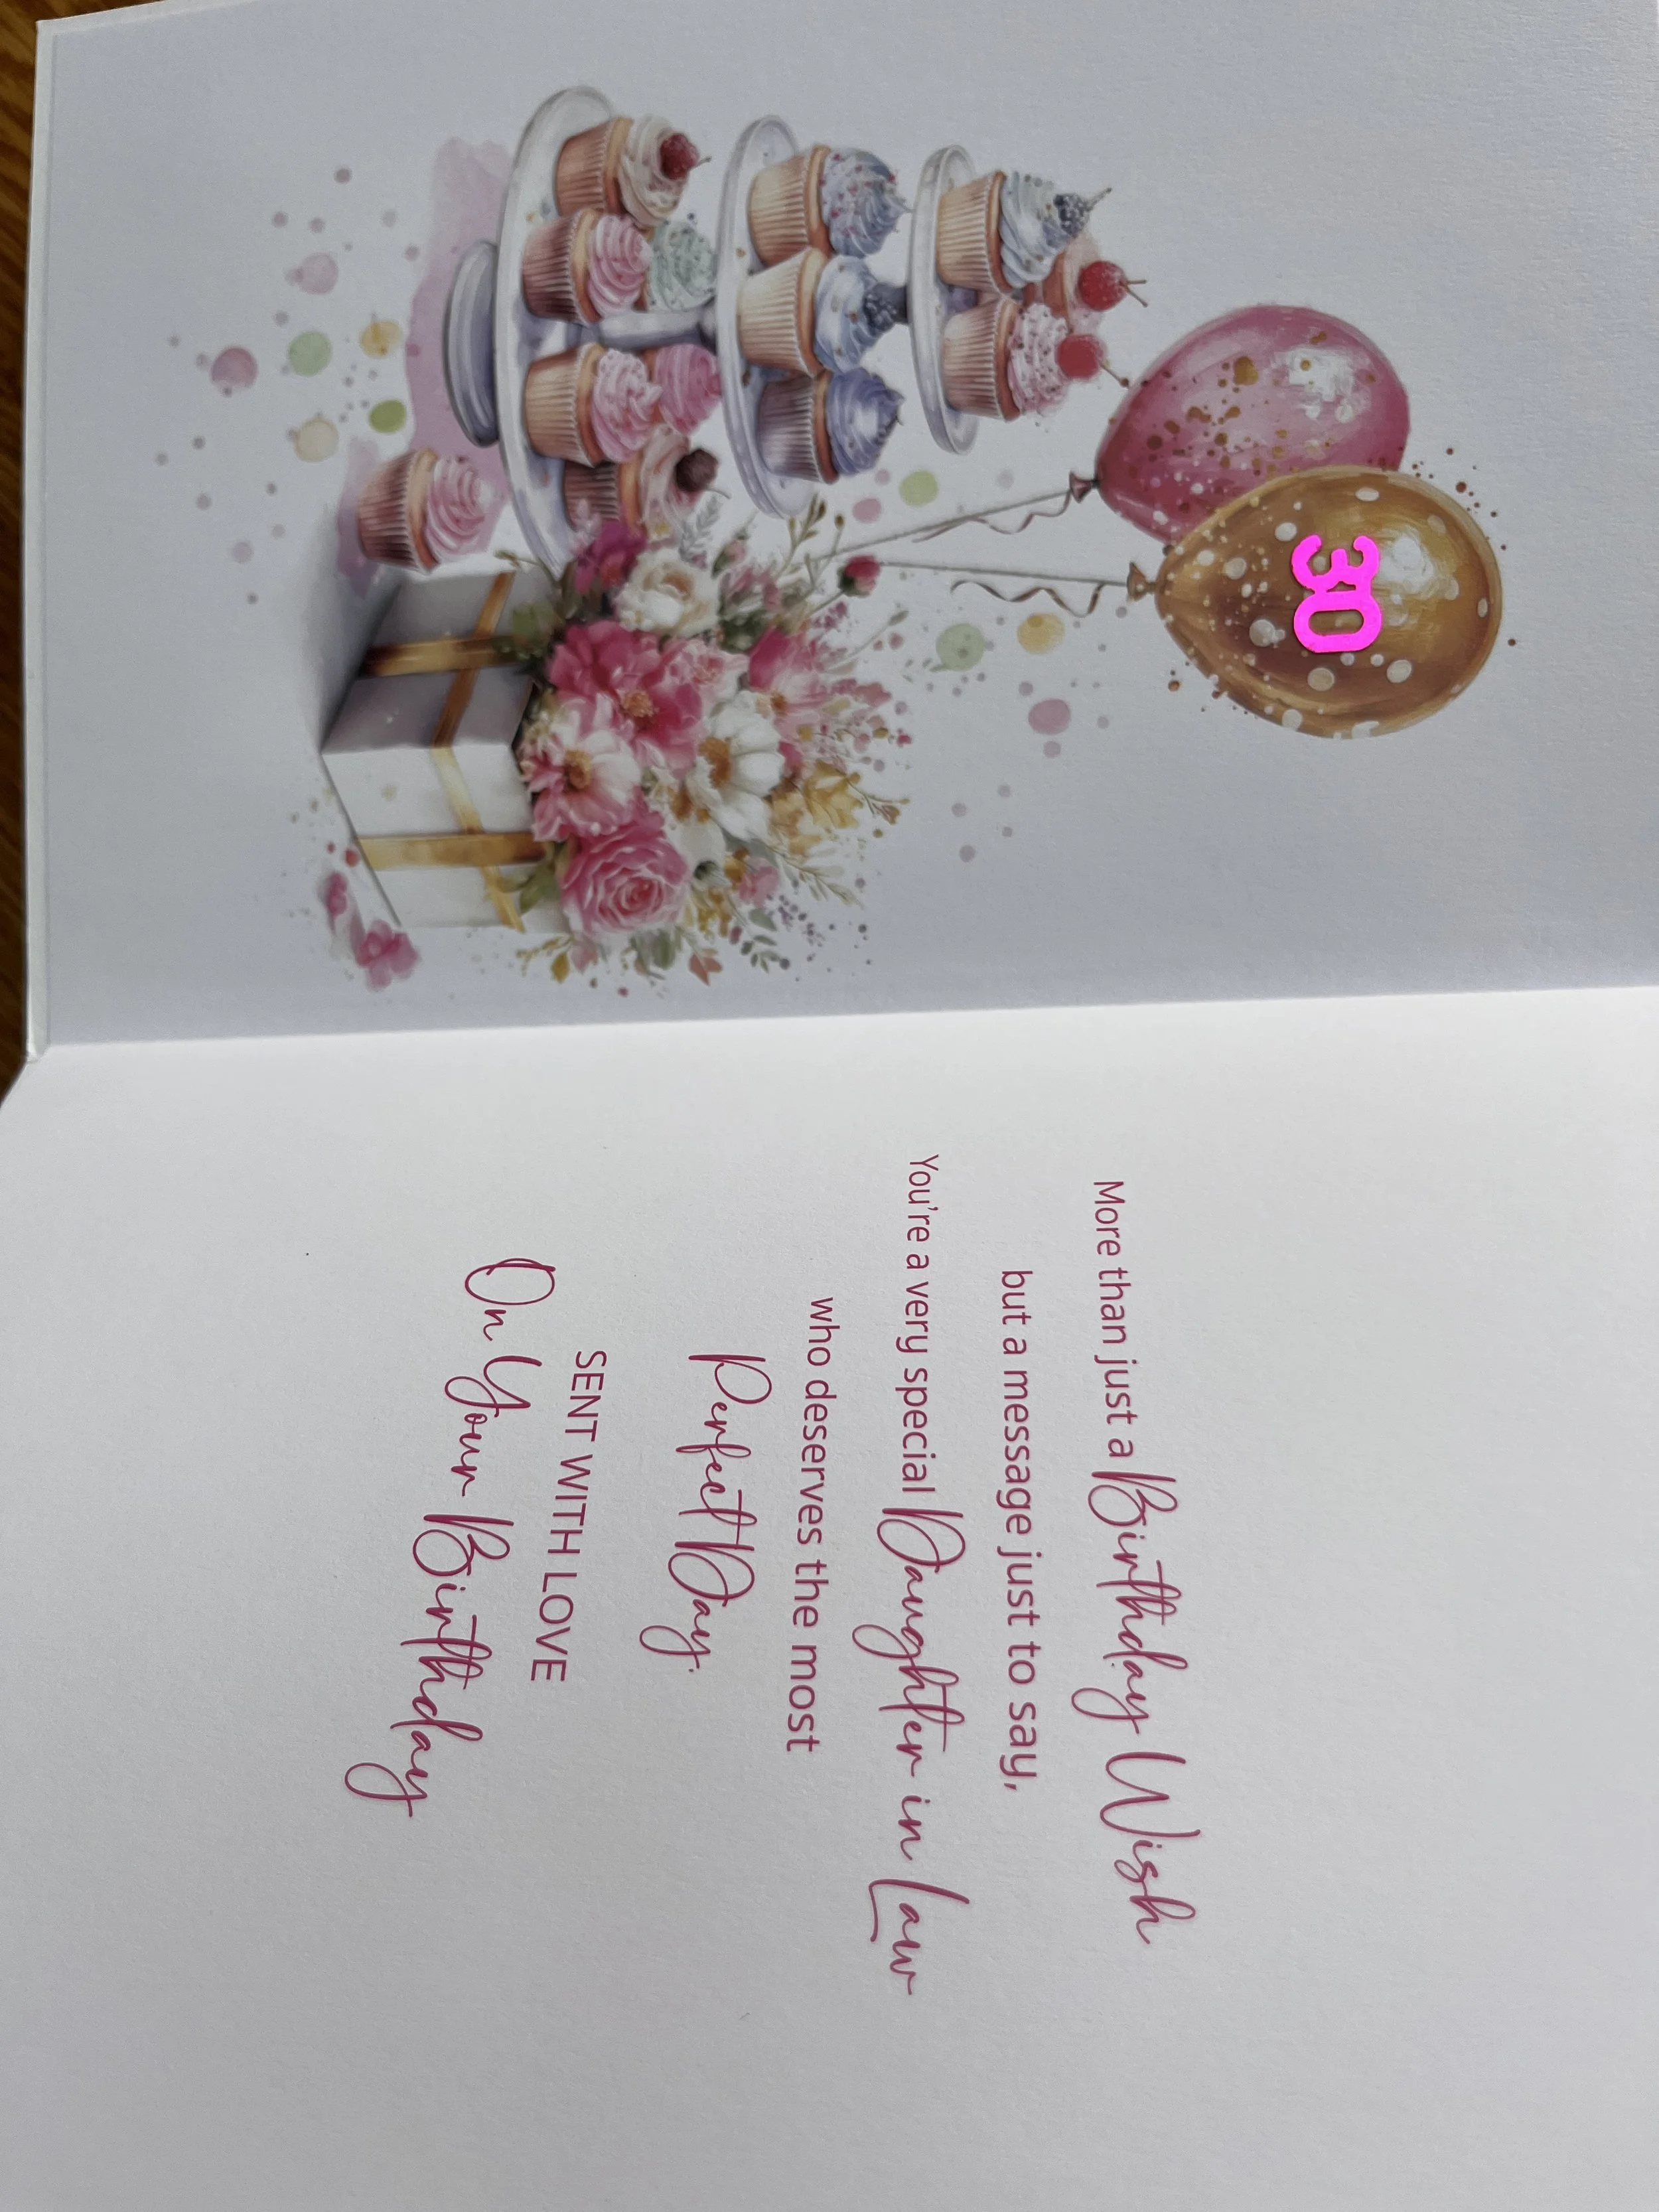 30
More than just a Birthday Wish
but a message just to say,
You're a very special Daughter in Law
who deserves the most
Perfect Day.
SENT WITH LOVE
On Your Birthday